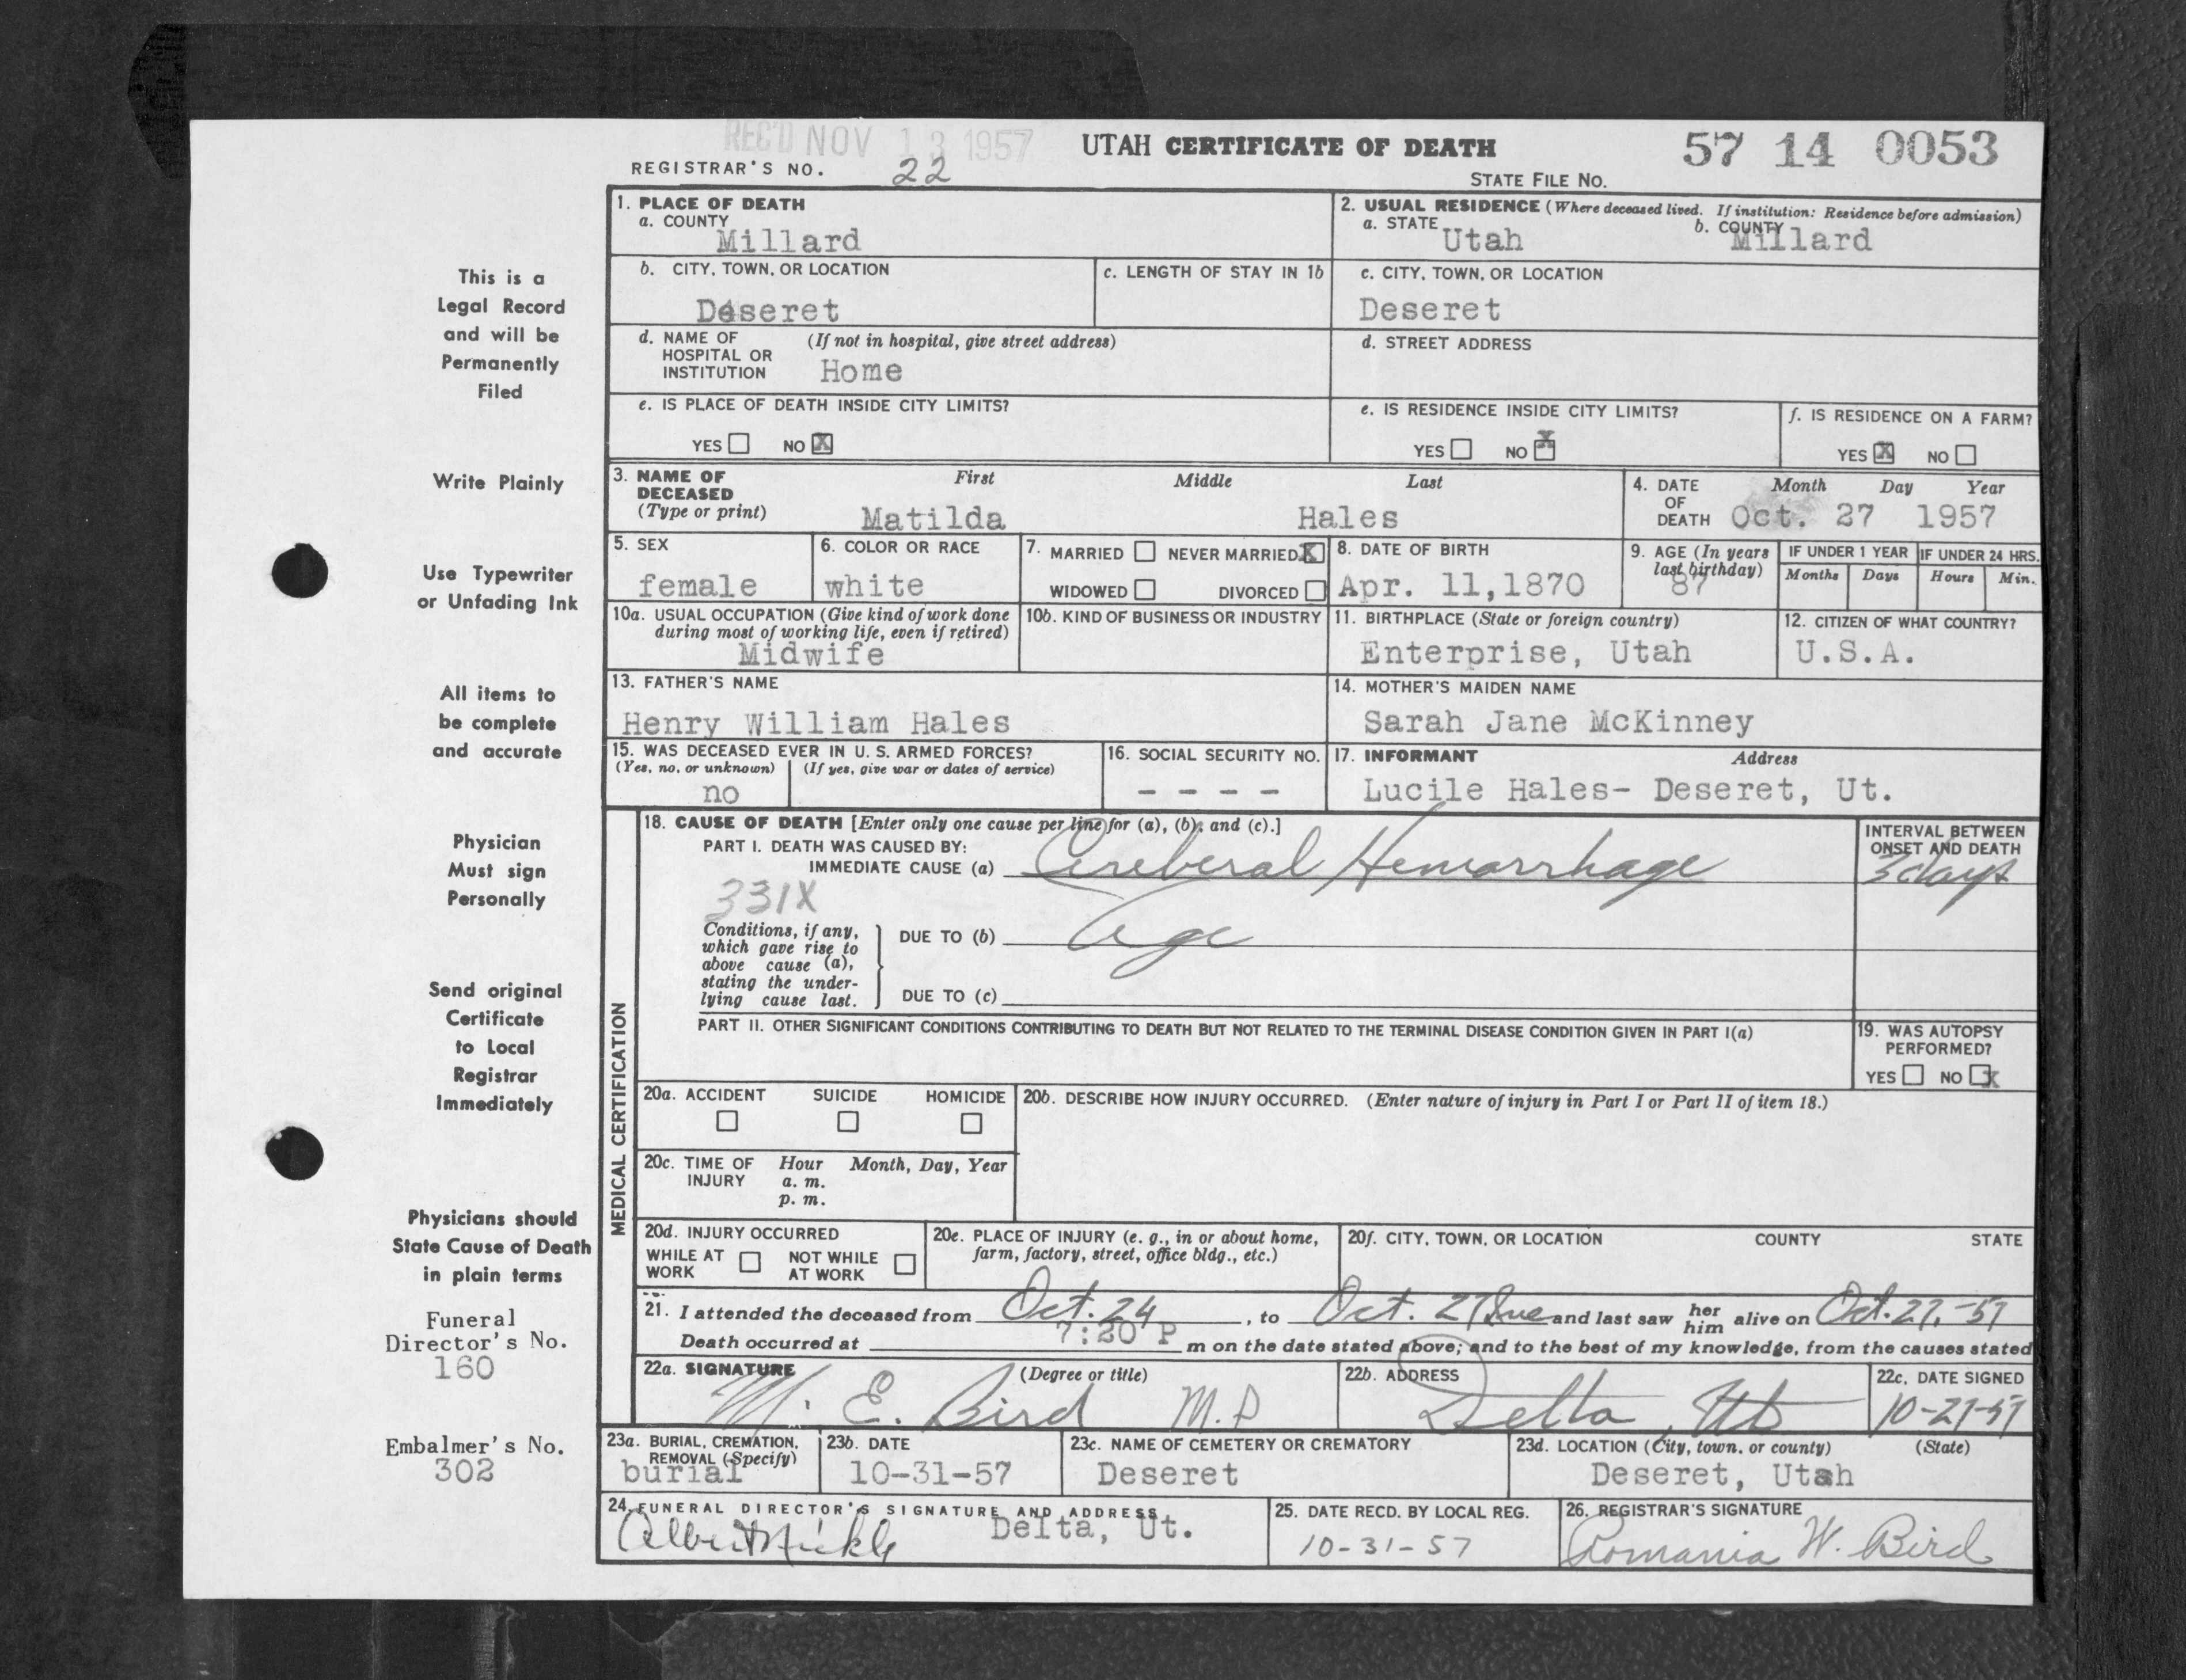 REC'D NOV 13 1957
UTAH CERTIFICATE OF DEATH
57 14 0053
REGISTRAR'S NO. 22
STATE FILE NO.
1. PLACE OF DEATH
a. COUNTY
Millard
2. USUAL RESIDENCE (Where deceased lived. If institution: Residence before admission)
a. STATE Utah b. COUNTY Millard
b. CITY, TOWN, OR LOCATION
Deseret
c. LENGTH OF STAY IN 1b
c. CITY, TOWN, OR LOCATION
Deseret
d. NAME OF HOSPITAL OR INSTITUTION (If not in hospital, give street address)
Home
d. STREET ADDRESS
e. IS PLACE OF DEATH INSIDE CITY LIMITS?
YES NO X
e. IS RESIDENCE INSIDE CITY LIMITS?
YES NO X
f. IS RESIDENCE ON A FARM?
YES X NO
3. NAME OF DECEASED (Type or print)
First Middle Last
Matilda Hales
4. DATE OF DEATH
Month Day Year
Oct. 27 1957
5. SEX
female
6. COLOR OR RACE
white
7. MARRIED NEVER MARRIED X
WIDOWED DIVORCED
8. DATE OF BIRTH
Apr. 11,1870
9. AGE (In years last birthday)
87
IF UNDER 1 YEAR
Months Days
IF UNDER 24 HRS.
Hours Min.
10a. USUAL OCCUPATION (Give kind of work done during most of working life, even if retired)
Midwife
10b. KIND OF BUSINESS OR INDUSTRY
11. BIRTHPLACE (State or foreign country)
Enterprise, Utah
12. CITIZEN OF WHAT COUNTRY?
U.S.A.
13. FATHER'S NAME
Henry William Hales
14. MOTHER'S MAIDEN NAME
Sarah Jane McKinney
15. WAS DECEASED EVER IN U. S. ARMED FORCES?
(Yes, no, or unknown) (If yes, give war or dates of service)
no
16. SOCIAL SECURITY NO.
- - - -
17. INFORMANT Address
Lucile Hales- Deseret, Ut.
MEDICAL CERTIFICATION
18. CAUSE OF DEATH [Enter only one cause per line for (a), (b), and (c).]
PART I. DEATH WAS CAUSED BY:
IMMEDIATE CAUSE (a) Cereberal Hemorrhage
INTERVAL BETWEEN ONSET AND DEATH
3 days
331X
Conditions, if any,
which gave rise to
above cause (a),
stating the under-
lying cause last.
DUE TO (b) Age
DUE TO (c)
PART II. OTHER SIGNIFICANT CONDITIONS CONTRIBUTING TO DEATH BUT NOT RELATED TO THE TERMINAL DISEASE CONDITION GIVEN IN PART I(a)
19. WAS AUTOPSY PERFORMED?
YES NO X
20a. ACCIDENT SUICIDE HOMICIDE
20b. DESCRIBE HOW INJURY OCCURRED. (Enter nature of injury in Part I or Part II of item 18.)
20c. TIME OF INJURY Hour Month, Day, Year
a. m.
p. m.
20d. INJURY OCCURRED
WHILE AT WORK NOT WHILE AT WORK
20e. PLACE OF INJURY (e. g., in or about home, farm, factory, street, office bldg., etc.)
20f. CITY, TOWN, OR LOCATION COUNTY STATE
21. I attended the deceased from Oct. 24, to Oct. 27 and last saw her him alive on Oct. 27, -57
Death occurred at 7:20 P m on the date stated above; and to the best of my knowledge, from the causes stated
22a. SIGNATURE (Degree or title)
M. E. Bird M.D
22b. ADDRESS
Delta, Ut
22c. DATE SIGNED
10-27-57
23a. BURIAL, CREMATION, REMOVAL (Specify)
burial
23b. DATE
10-31-57
23c. NAME OF CEMETERY OR CREMATORY
Deseret
23d. LOCATION (City, town, or county) (State)
Deseret, Utah
24. FUNERAL DIRECTOR'S SIGNATURE AND ADDRESS
Delta, Ut.
25. DATE RECD. BY LOCAL REG.
10-31-57
26. REGISTRAR'S SIGNATURE
Romania W. Bird
This is a
Legal Record
and will be
Permanently
Filed
Write Plainly
Use Typewriter
or Unfading Ink
All items to
be complete
and accurate
Physician
Must sign
Personally
Send original
Certificate
to Local
Registrar
Immediately
Physicians should
State Cause of Death
in plain terms
Funeral
Director's No.
160
Embalmer's No.
302